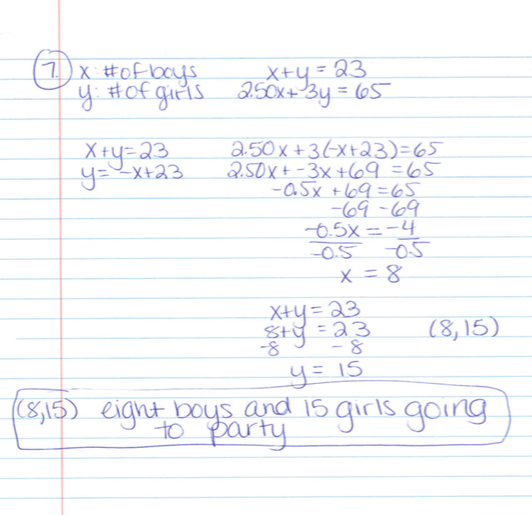 7. x: # of boys x+y = 23
y: # of girls 2.50x + 3y = 65
x+y=23 2.50x + 3(-x+23)=65
y= -x+23 2.50x + -3x +69 = 65
-0.5x +69 = 65
-69 -69
-0.5x = -4
-0.5 -0.5
x = 8
x+y = 23
8+y = 23 (8,15)
-8 -8
y = 15
(8,15) eight boys and 15 girls going
to party